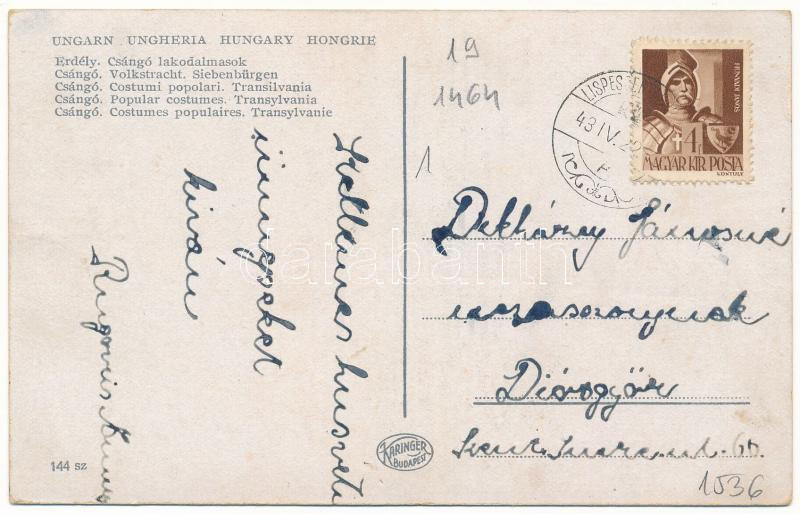 UNGARN UNGHERIA HUNGARY HONGRIE
Erdély. Csángó lakodalmasok
Csángó. Volkstracht. Siebenbürgen
Csángó. Costumi popolari. Transilvania
Csángó. Popular costumes. Transylvania
Csángó. Costumes populaires. Transylvanie
19
1464
1
LISPESZE
43 IV. 2
HUNYADI JÁNOS
4f
MAGYAR KIR. POSTA
KONTULY
Kellemes husvéti
ünnepeket
kíván
Jánosné
úrasszonynak
Diósgyőr
Szent Imre u. 60.
1536
144 sz
KARINGER
BUDAPEST
darabanth